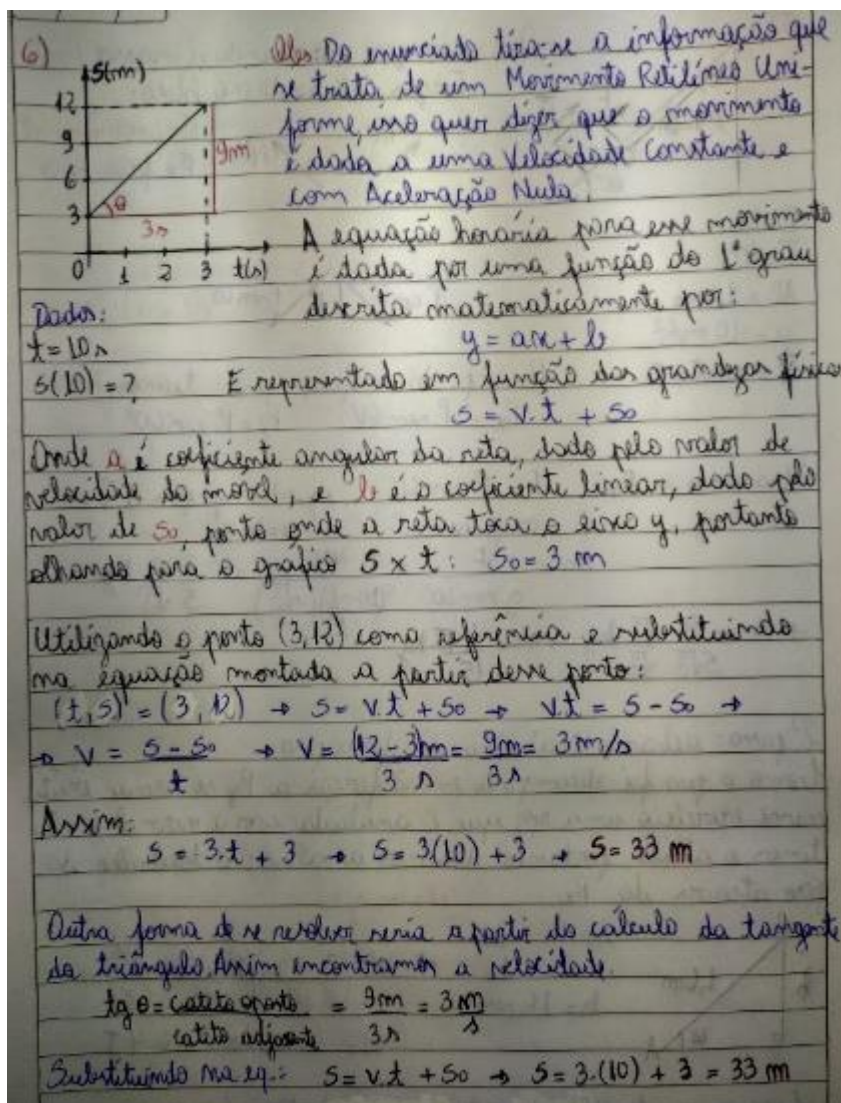 6)
Obs Do enunciado tira-se a informação que
se trata de um Movimento Retilíneo Uni-
forme, isso quer dizer que o movimento
é dado a uma Velocidade Constante e
com Aceleração Nula.
S(m)
12
9
6
3
0 1 2 3 t(s)
θ
9m
3s
A equação horária para esse movimento
é dada por uma função do 1º grau
descrita matematicamente por:
y = ax + b
Dados:
t = 10s
s(10) = ?
E representado em função das grandezas físicas
S = V.t + So
Onde a é coeficiente angular da reta, dado pelo valor de
velocidade do móvel, e b é o coeficiente linear, dado pelo
valor de So, ponto onde a reta toca o eixo y, portanto
olhando para o gráfico S x t: So = 3 m
Utilizando o ponto (3,12) como referência e substituindo
na equação montada a partir desse ponto:
(t,s) = (3,12) → S = V.t + So → V.t = S - So →
→ V = S - So / t → V = (12 - 3)m / 3 s = 9m / 3s = 3m/s
Assim:
S = 3.t + 3 → S = 3(10) + 3 → S = 33 m
Outra forma de se resolver seria a partir do cálculo da tangente
do triângulo. Assim encontramos a velocidade.
tg θ = cateto oposto / cateto adjacente = 9m / 3s = 3 m / s
Substituindo na eq.: S = V.t + So → S = 3.(10) + 3 = 33 m